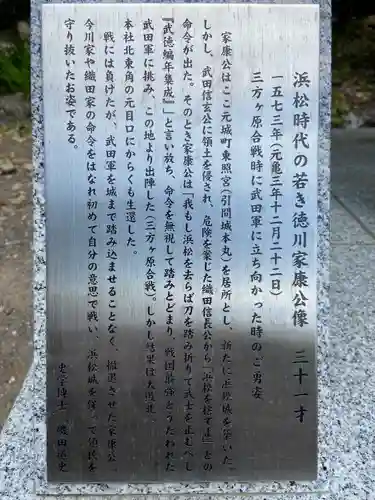 浜松時代の若き徳川家康公像　三十一才
一五七三年(元亀三年十二月二十二日)
三方ヶ原合戦時に武田軍に立ち向かった時のご勇姿
家康公はここ元城町東照宮(引間城本丸)を居所とし、新たに浜松城を築いた。
しかし、武田信玄公に領土を侵され、危険を案じた織田信長公から「浜松を捨てよ」との
命令が出た。そのとき家康公は「我もし浜松を去らば刀を踏み折りて武士を止むべし
『武徳編年集成』」と言い放ち、命令を無視して踏みとどまり、戦国最強とうたわれた
武田軍に挑み、この地より出陣した(三方ヶ原合戦)。しかし結果は大敗北、
本社北東角の元目口にからくも生還した。
戦には負けたが、武田軍を城まで踏み込ませることなく、撤退させた家康公、
今川家や織田家の命令をはなれ初めて自分の意思で戦い、浜松城を保って領民を
守り抜いたお姿である。
史学博士　磯田道史